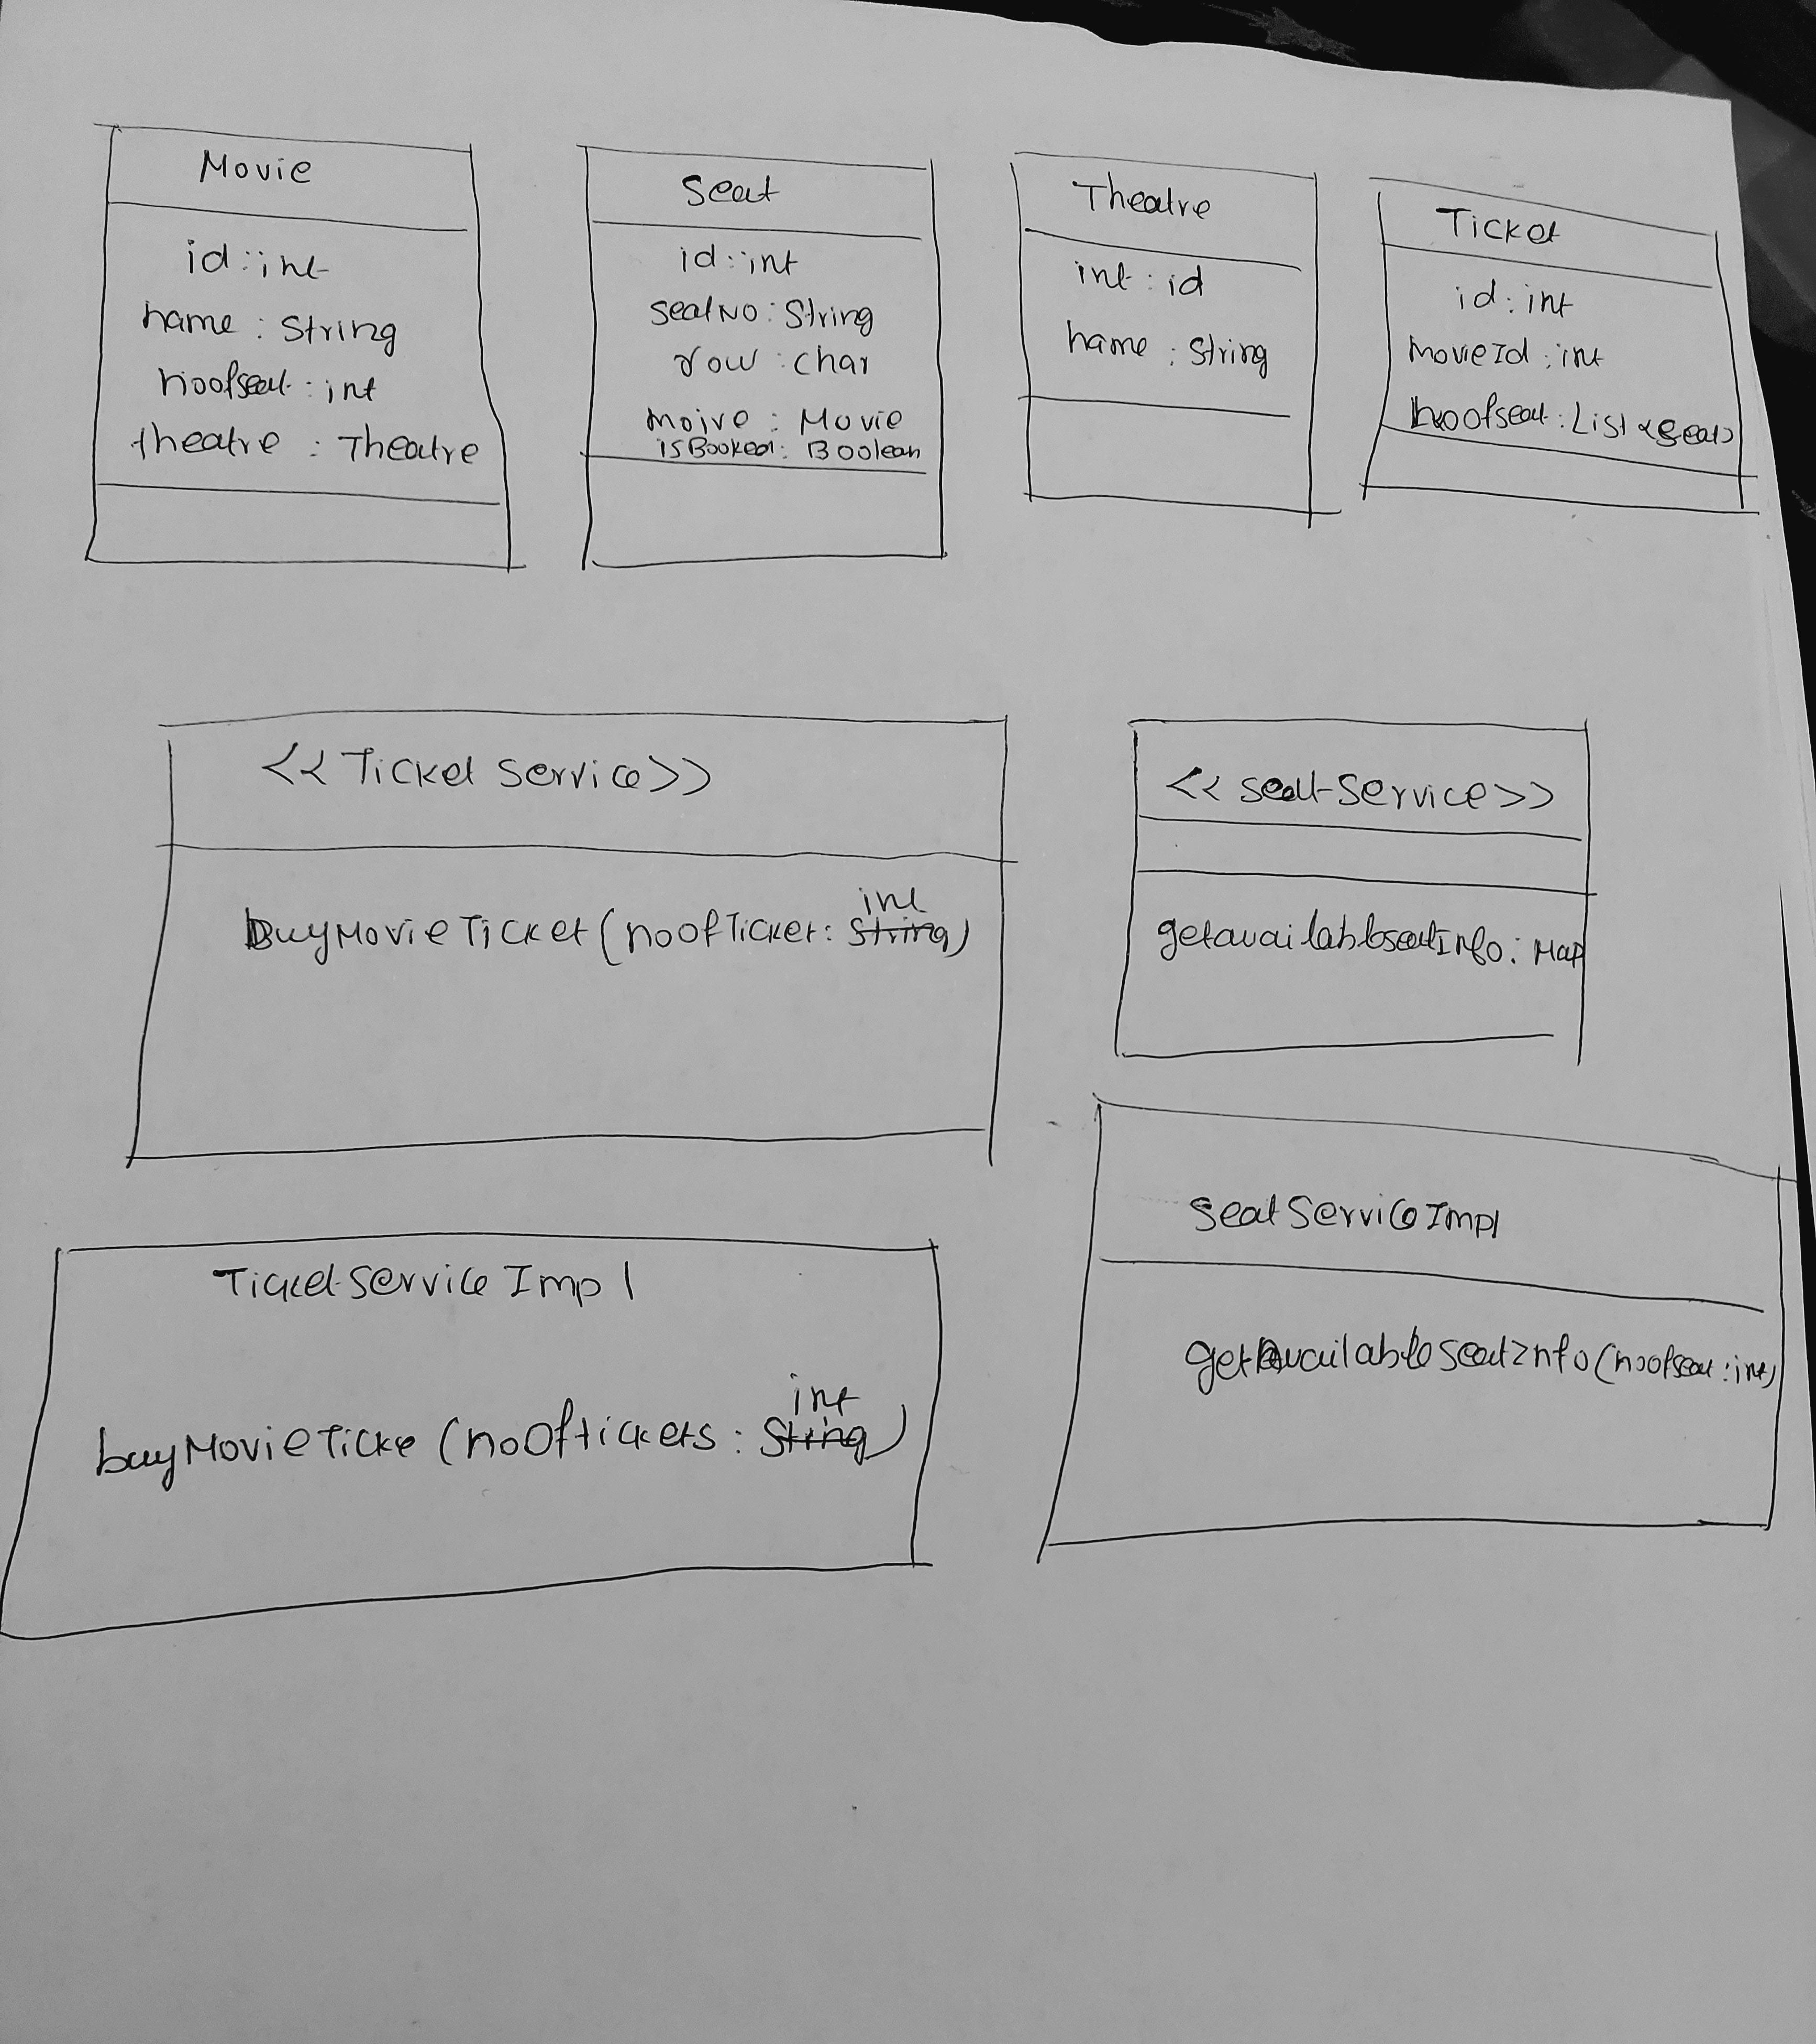 Movie
id : int
name : String
noofseat : int
theatre : Theatre
Seat
id : int
seatNo : String
row : char
moive : Movie
isBooked : Boolean
Theatre
int : id
name : String
Ticket
id : int
movieId : int
noofseat : List <Seat>
<< Ticket Service >>
int
buyMovieTicket (noofTicket : String)
<< seat Service >>
getavailableseatInfo : Map
TicketService Impl
int
buyMovieTicke (noOftickets : String)
seatServiceImpl
getAvailableSeatInfo (noofseat : int)